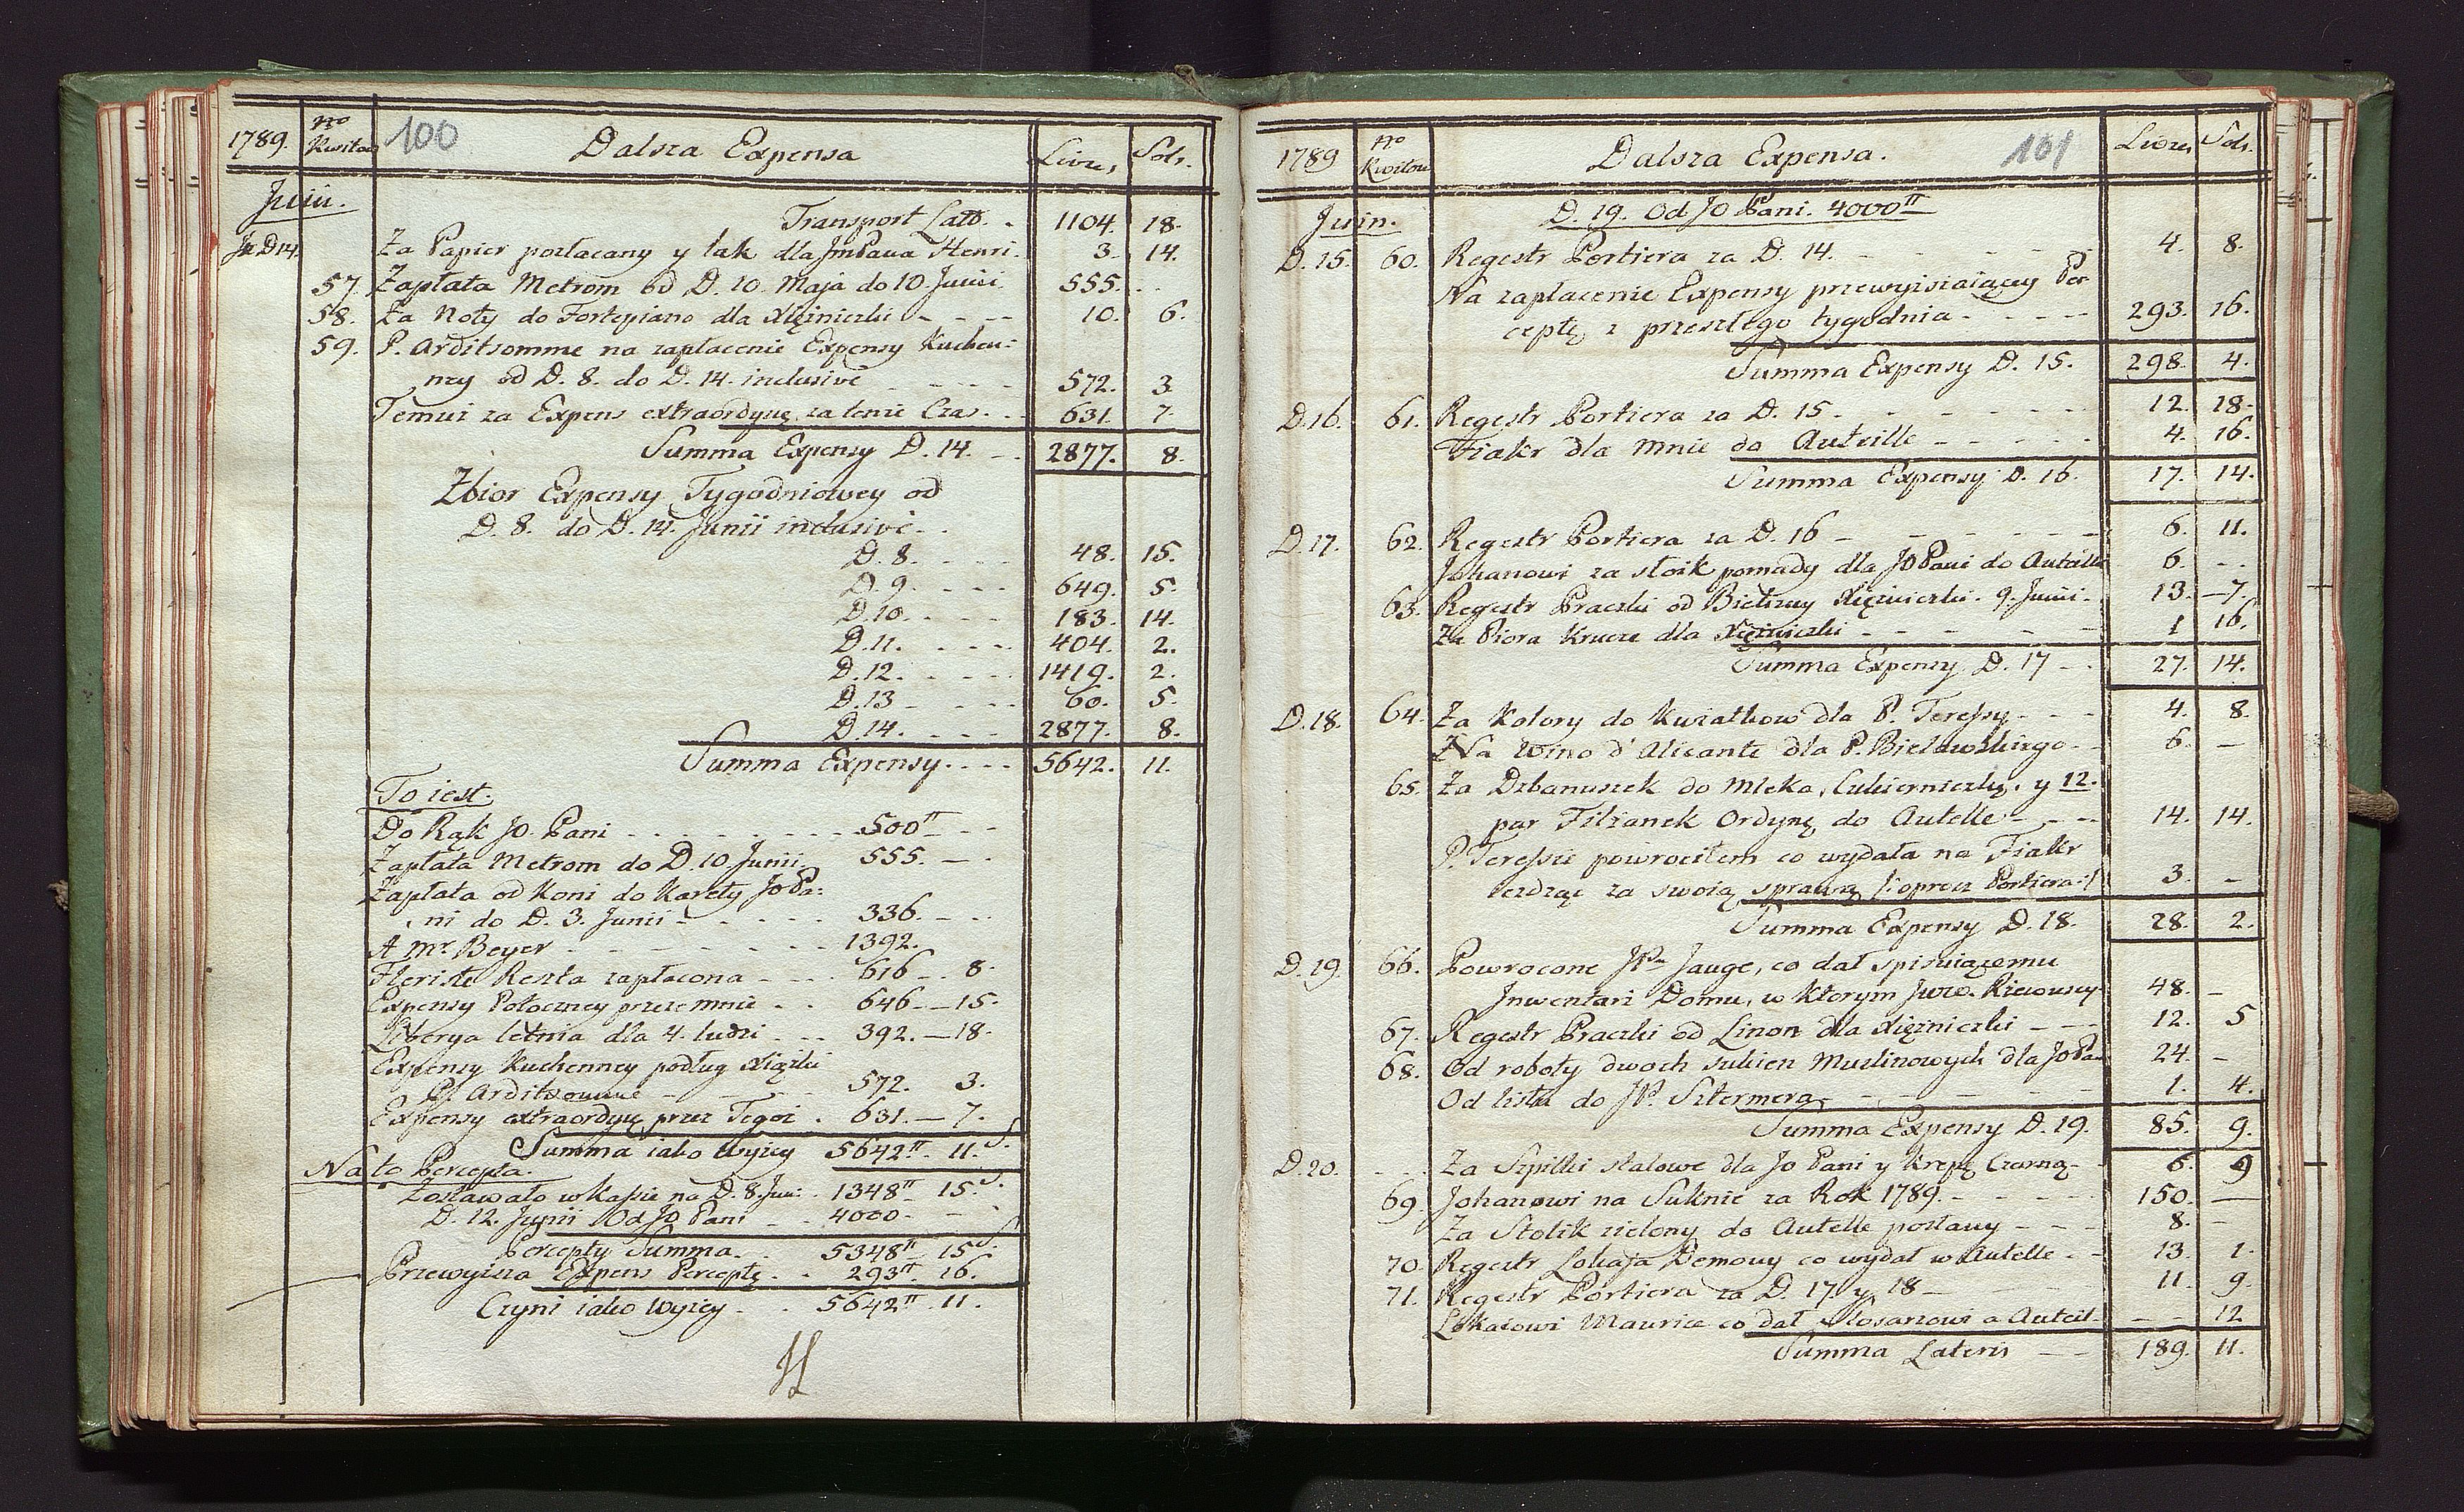 1789. no Kwitow 100 Dalsza Expensa Livres, Sols.
Junii.
Transport Latō. 1104. 18.
D14. Za Papier pozłacany y lak dla JmPana Henri. 3. 14.
57. Zapłata Metrom od D. 10. Maja do 10. Junii. 555.
58. Za Noty do Fortepiano dla Xiężniczki - - - - 10. 6.
59. P. Arditsomme na zapłacenie Expensy Kuchen:
ney od D. 8. do D. 14. inclusivè - - - - 572. 3.
Temuż za Expens extraordynę za tenże Czas. 631. 7.
Summa Expensy D. 14. - 2877. 8.
Zbior Expensy Tygodniowey od
D. 8. do D. 14. Junii inclusivè.
D. 8. 48. 15.
D. 9. 649. 5.
D. 10. 183. 14.
D. 11. 404. 2.
D. 12. 1419. 2.
D. 13 60. 5.
D. 14. 2877. 8.
Summa Expensy. 5642. 11.
To iest.
Do Rąk JO. Pani - - - 500tt - -
Zapłata Metrom do D. 10 Junii. 555. - .
Zapłata od Koni do Karety JOPa:
ni do D. 3. Junii - - - 336. - ..
A Mr Beyer - - - 1392.
Fleriste Reszta zapłacona - - - 616 - 8.
Expensy Potoczney przezemnie - . 646 - 15.
Liberya letnia dla 4. ludzi - - - 392. - 18.
Expensy Kuchenney podług Xiążki
P. Arditsomme - - - 572. 3.
Expensy extraordynę przez Tegoż . 631. - 7.
Summa iako wyżey 5642tt. 11.S.
Na to Percepta.
Zostawało w Kassie na D. 8. Juni. 1348tt 15.S.
D. 12. Junii Od JO Pani - - 4000. - .
Percepty Summa. 5348tt. 15S.
Przewyzsza Expens Perceptę. . . 293tt. 16.
Czyni iako wyżey - . . 5642tt. 11.
1789 no Kwitow Dalsza Expensa. 101 Livres Sols.
Juin. D. 19. Od JO Pani. 4000tt
D. 15. 60. Regestr Portiera za D. 14. - - - 4. 8.
Na zapłacenie Expensy przewyższaiącey Per
ceptę z przeszłego tygodnia - - - - 293. 16.
Summa Expensy D. 15. 298. 4.
D. 16. 61. Regestr Portiera za D. 15. - - - 12. 18.
Fiakr dla mnie do Auteille - - - 4. 16.
Summa Expensy D. 16. 17. 14.
D. 17. 62. Regestr Portiera za D. 16 - - - 6. 11.
Johanowi za słoik pomady dla JOPani do Auteille 6. - -
63. Regestr Praczki od Bielizny Xiężniczki. 9. Junii. 13. - 7.
Za Piora Krucze dla Xiężniczki - - - 1 16.
Summa Expensy D. 17 - . 27. 14.
D. 18. 64. Za Kolory do Kwiatkow dla P. Teressy - - - 4. 8.
Na Wino d'Alicante dla P. Bielawskiego - 6. -
65. Za Dzbanuszek do Mleka, Cukierniczkę, y 12.
par Filiżanek Ordynę do Autelle - - - 14. 14.
P. Teressie powrociłem co wydała na Fiakr
iezdząc za swoią sprawą /: oprocz Portiera :/ 3. -
Summa Expensy D. 18. 28. 2.
D. 19. 66. Powrocone JPu Jauge, co dał spisuiącemu
Inwentarz Domu, w ktorym Jww. Kiiowscy 48. -
67. Regestr Praczki od Linon dla Xiężniczki - - - 12. 5
68. Od roboty dwoch sukien Muslinowych dla JOPani 24. -
Od listu do JP. Sztermera - - - 1. 4.
Summa Expensy D. 19. 85. 9.
D. 20. - - . Za Szpilki stalowe dla JO Pani y Krepę Czarną - 6. 9
69. Johanowi na Suknie za Rok 1789. - - - 150. -
Za Stolik zielony do Autelle posłany - - - 8. -
70. Regestr Lokaja Demowy co wydał w Autelle - - 13. 1.
71. Regestr Portiera za D. 17 y 18 - 11. 9.
Lokaiowi Maurice co dał Slosarzowi a Auteil - - 12
Summa Lateris - - 189. 11.